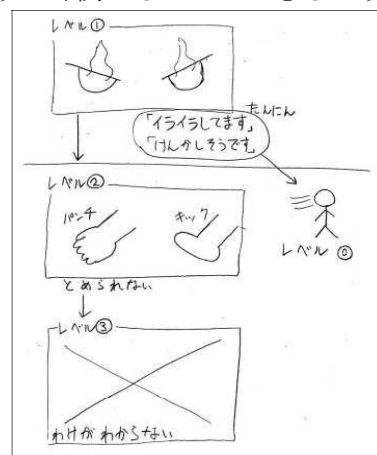 レベル①
たんにん
「イライラしてます」
「けんかしそうです」
レベル②
パンチ
キック
レベル⓪
とめられない
レベル③
わけがわからない